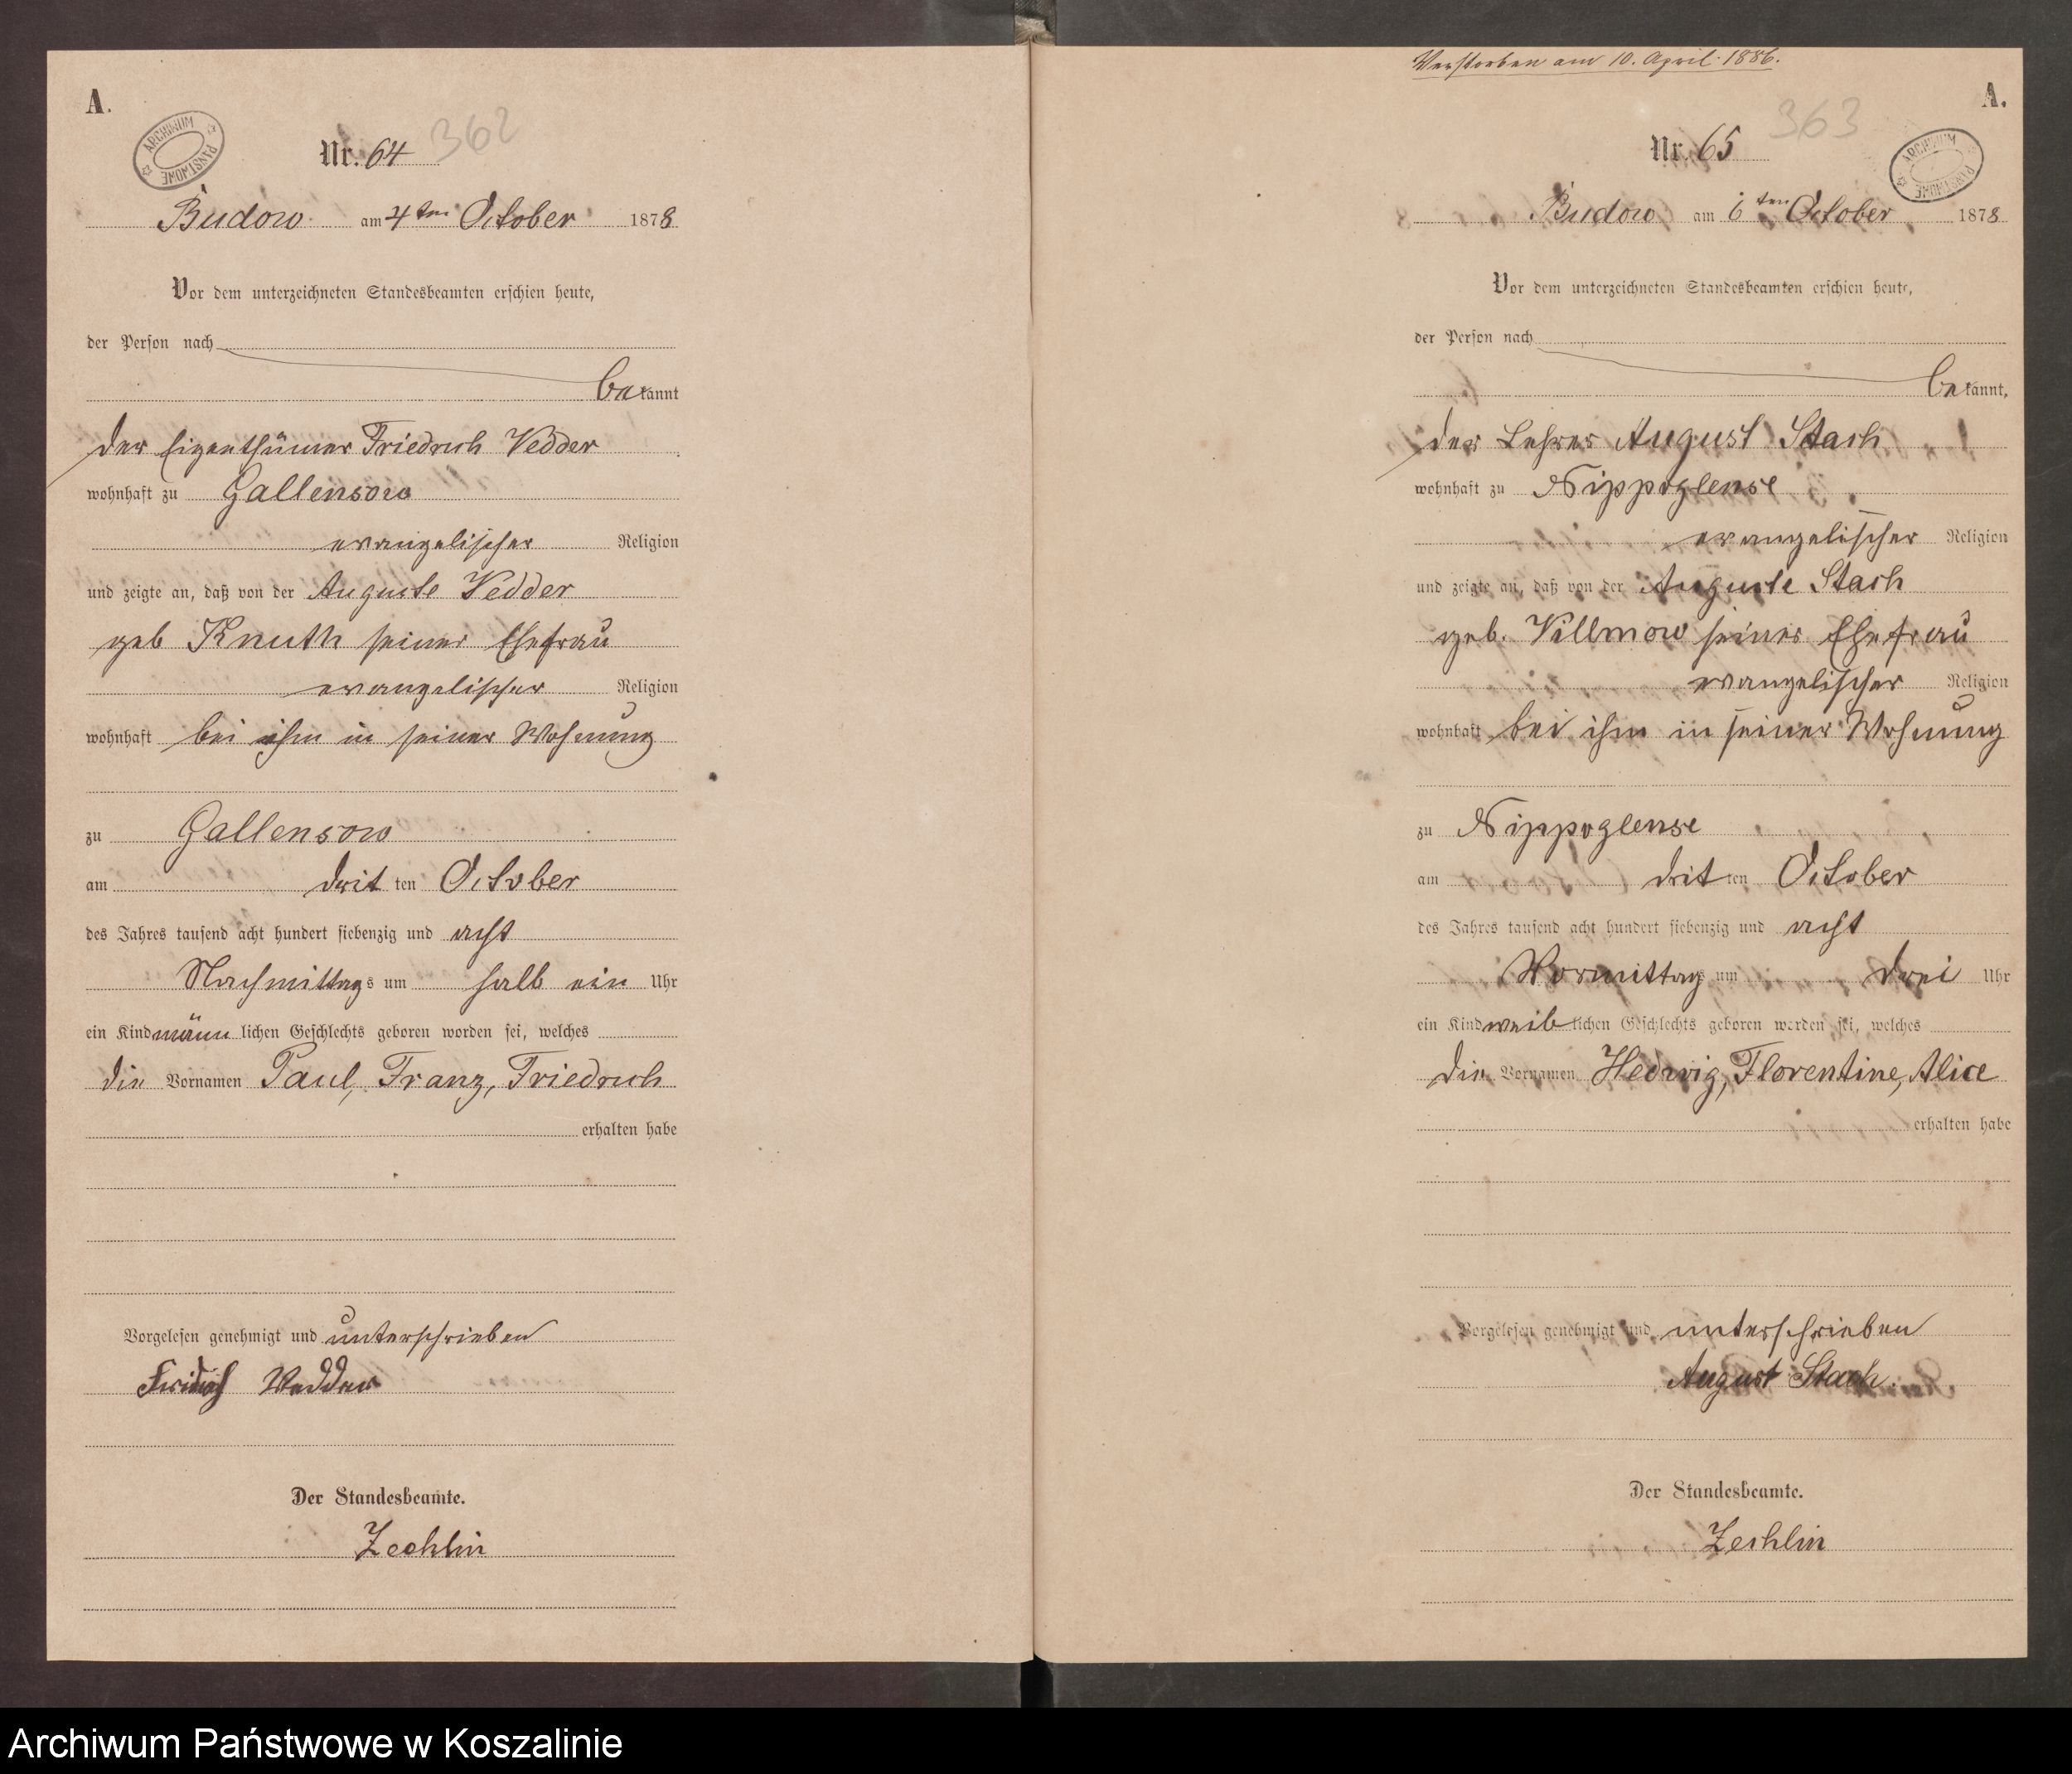 A.
ARCHIWUM PAŃSTWOWE
Nr. 64
362
Budow am 4ten October 1878
Vor dem unterzeichneten Standesbeamten erschien heute,
der Person nach
bekannt
der Eigenthümer Friedrich Vedder
wohnhaft zu Gallensow
evangelischer Religion
und zeigte an, daß von der Auguste Vedder
geb Knuth seiner Ehefrau
evangelischer Religion
wohnhaft bei ihm in seiner Wohnung
zu Gallensow
am dritten October
des Jahres tausend acht hundert siebenzig und acht
Nachmittags um halb ein Uhr
ein Kind männlichen Geschlechts geboren worden sei, welches
die Vornamen Paul, Franz, Friedrich
erhalten habe
Vorgelesen genehmigt und unterschrieben
Fridrich Vedder
Der Standesbeamte.
Zechlin
Verstorben am 10. April 1886.
A.
ARCHIWUM PAŃSTWOWE
Nr. 65
363
Budow am 6ten October 1878
Vor dem unterzeichneten Standesbeamten erschien heute,
der Person nach
bekannt,
der Lehrer August Stach
wohnhaft zu Nippoglense
evangelischer Religion
und zeigte an, daß von der Auguste Stach
geb. Villmow seiner Ehefrau
evangelischer Religion
wohnhaft bei ihm in seiner Wohnung
zu Nippoglense
am dritten October
des Jahres tausend acht hundert siebenzig und acht
Vormittags um drei Uhr
ein Kind weiblichen Geschlechts geboren worden sei, welches
die Vornamen Hedwig, Florentine, Alice
erhalten habe
Vorgelesen genehmigt und unterschrieben
August Stach.
Der Standesbeamte.
Zechlin
Archiwum Państwowe w Koszalinie